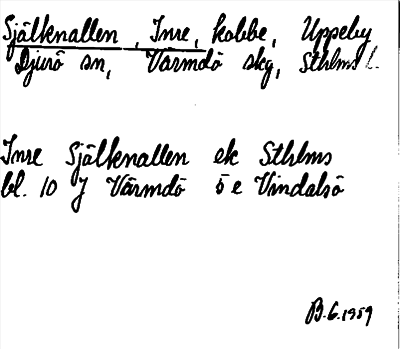 Själknallen, Inre, kobbe, Uppeby
Djurö sn, Värmdö skg, Sthlms l.
Inre Själknallen ek Sthlms
bl. 10 J Värmdö ö e Vindalsö
B.6.1959